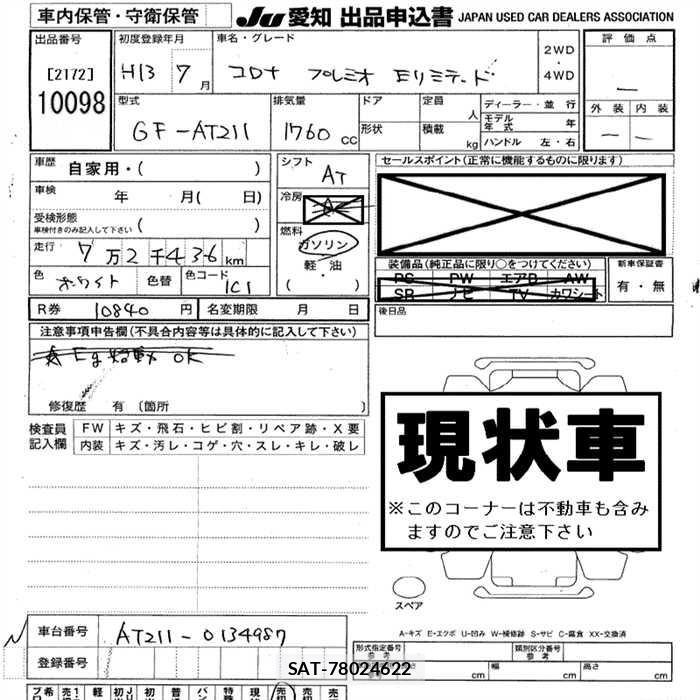 車内保管・守衛保管
JU 愛知 出品申込書 JAPAN USED CAR DEALERS ASSOCIATION
出品番号
[2172]
10098
初度登録年月
H13 7月
車名・グレード
コロナ プレミオ Eリミテッド
2WD
・
4WD
評価点
—
外装 内装
— —
型式
GF-AT211
排気量
1760 CC
ドア
形状
定員 人
積載 kg
ディーラー・並行
モデル年式 年
ハンドル 左・右
車歴 自家用・( )
車検 年 月( 日)
受検形態
車検付きのみ記入して下さい ( )
走行 7万2千436km
色 ホワイト 色替 色コード 1C1
シフト
AT
冷房
燃料
ガソリン
軽・油
( )
セールスポイント(正常に機能するものに限ります)
装備品(純正品に限り○をつけてください)
PS PW エアB AW
SR ナビ TV カワシート
新車保証書
有・無
後日品
R券 10840円 名変期限 月 日
注意事項申告欄(不具合内容等は具体的に記入して下さい)
Eg始動 OK
修復歴 有 〔箇所 〕
検査員記入欄
FW キズ・飛石・ヒビ割・リペア跡・X要
内装 キズ・汚レ・コゲ・穴・スレ・キレ・破レ
現状車
※このコーナーは不動車も含み
ますのでご注意下さい
スペア
A-キズ E-エクボ U-凹み W-補修跡 S-サビ C-腐食 XX-交換済
車台番号 AT211-0134987
登録番号
形式指定番号
参考
類別区分番号
参考
長さ cm 幅 cm 高さ cm
SAT-78024622